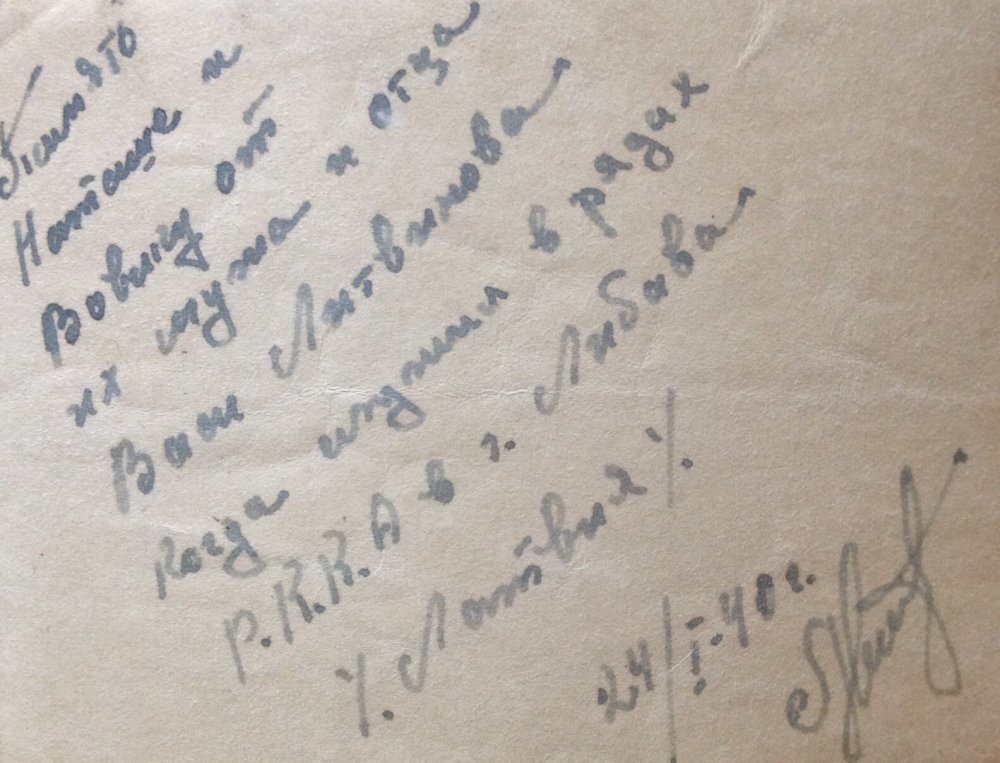 Память
Наташе и
Вовику от
их мужа и отца
Вани Литвинова
когда служил в рядах
Р.К.К.А в г. Либава
/. Латвия /.
24/I-40 г.